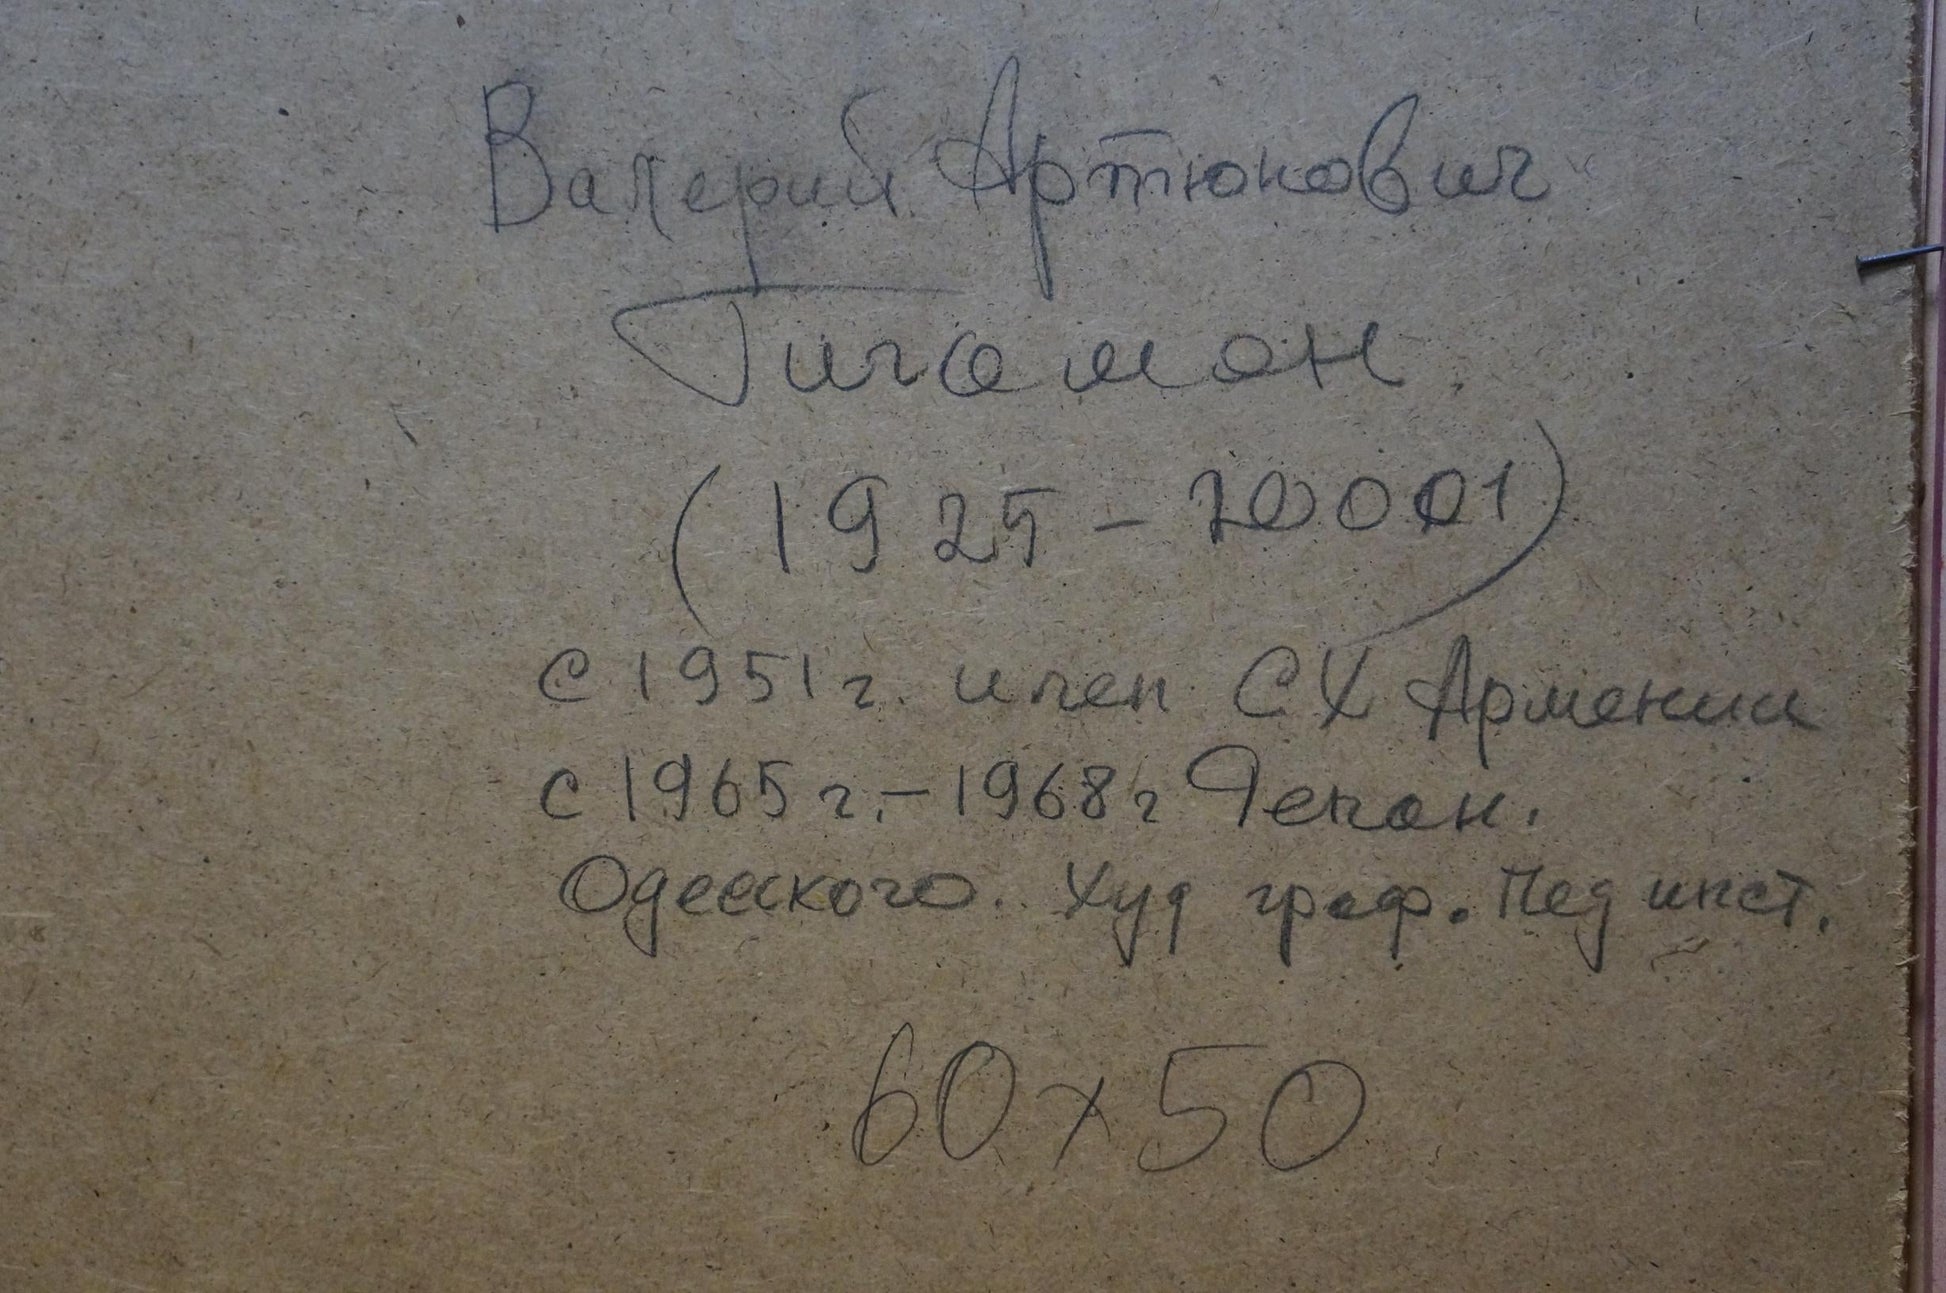 Валерий Артюнович
Гигамон.
(1925-20001)
с 1951 г. член СХ Армении
с 1965 г.-1968 г Декан.
Одесского. Худ граф. Пед инст.
60x50